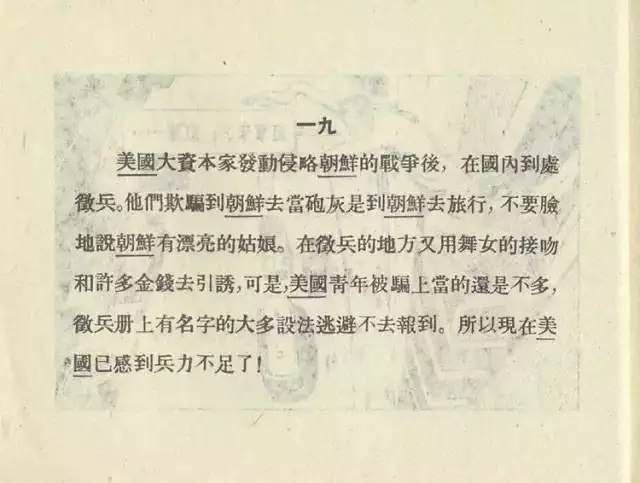 一九
美國大資本家發動侵略朝鮮的戰爭後，在國內到處
徵兵。他們欺騙到朝鮮去當砲灰是到朝鮮去旅行，不要臉
地說朝鮮有漂亮的姑娘。在徵兵的地方又用舞女的接吻
和許多金錢去引誘，可是，美國青年被騙上當的還是不多，
徵兵册上有名字的大多設法逃避不去報到。所以現在美
國已感到兵力不足了！